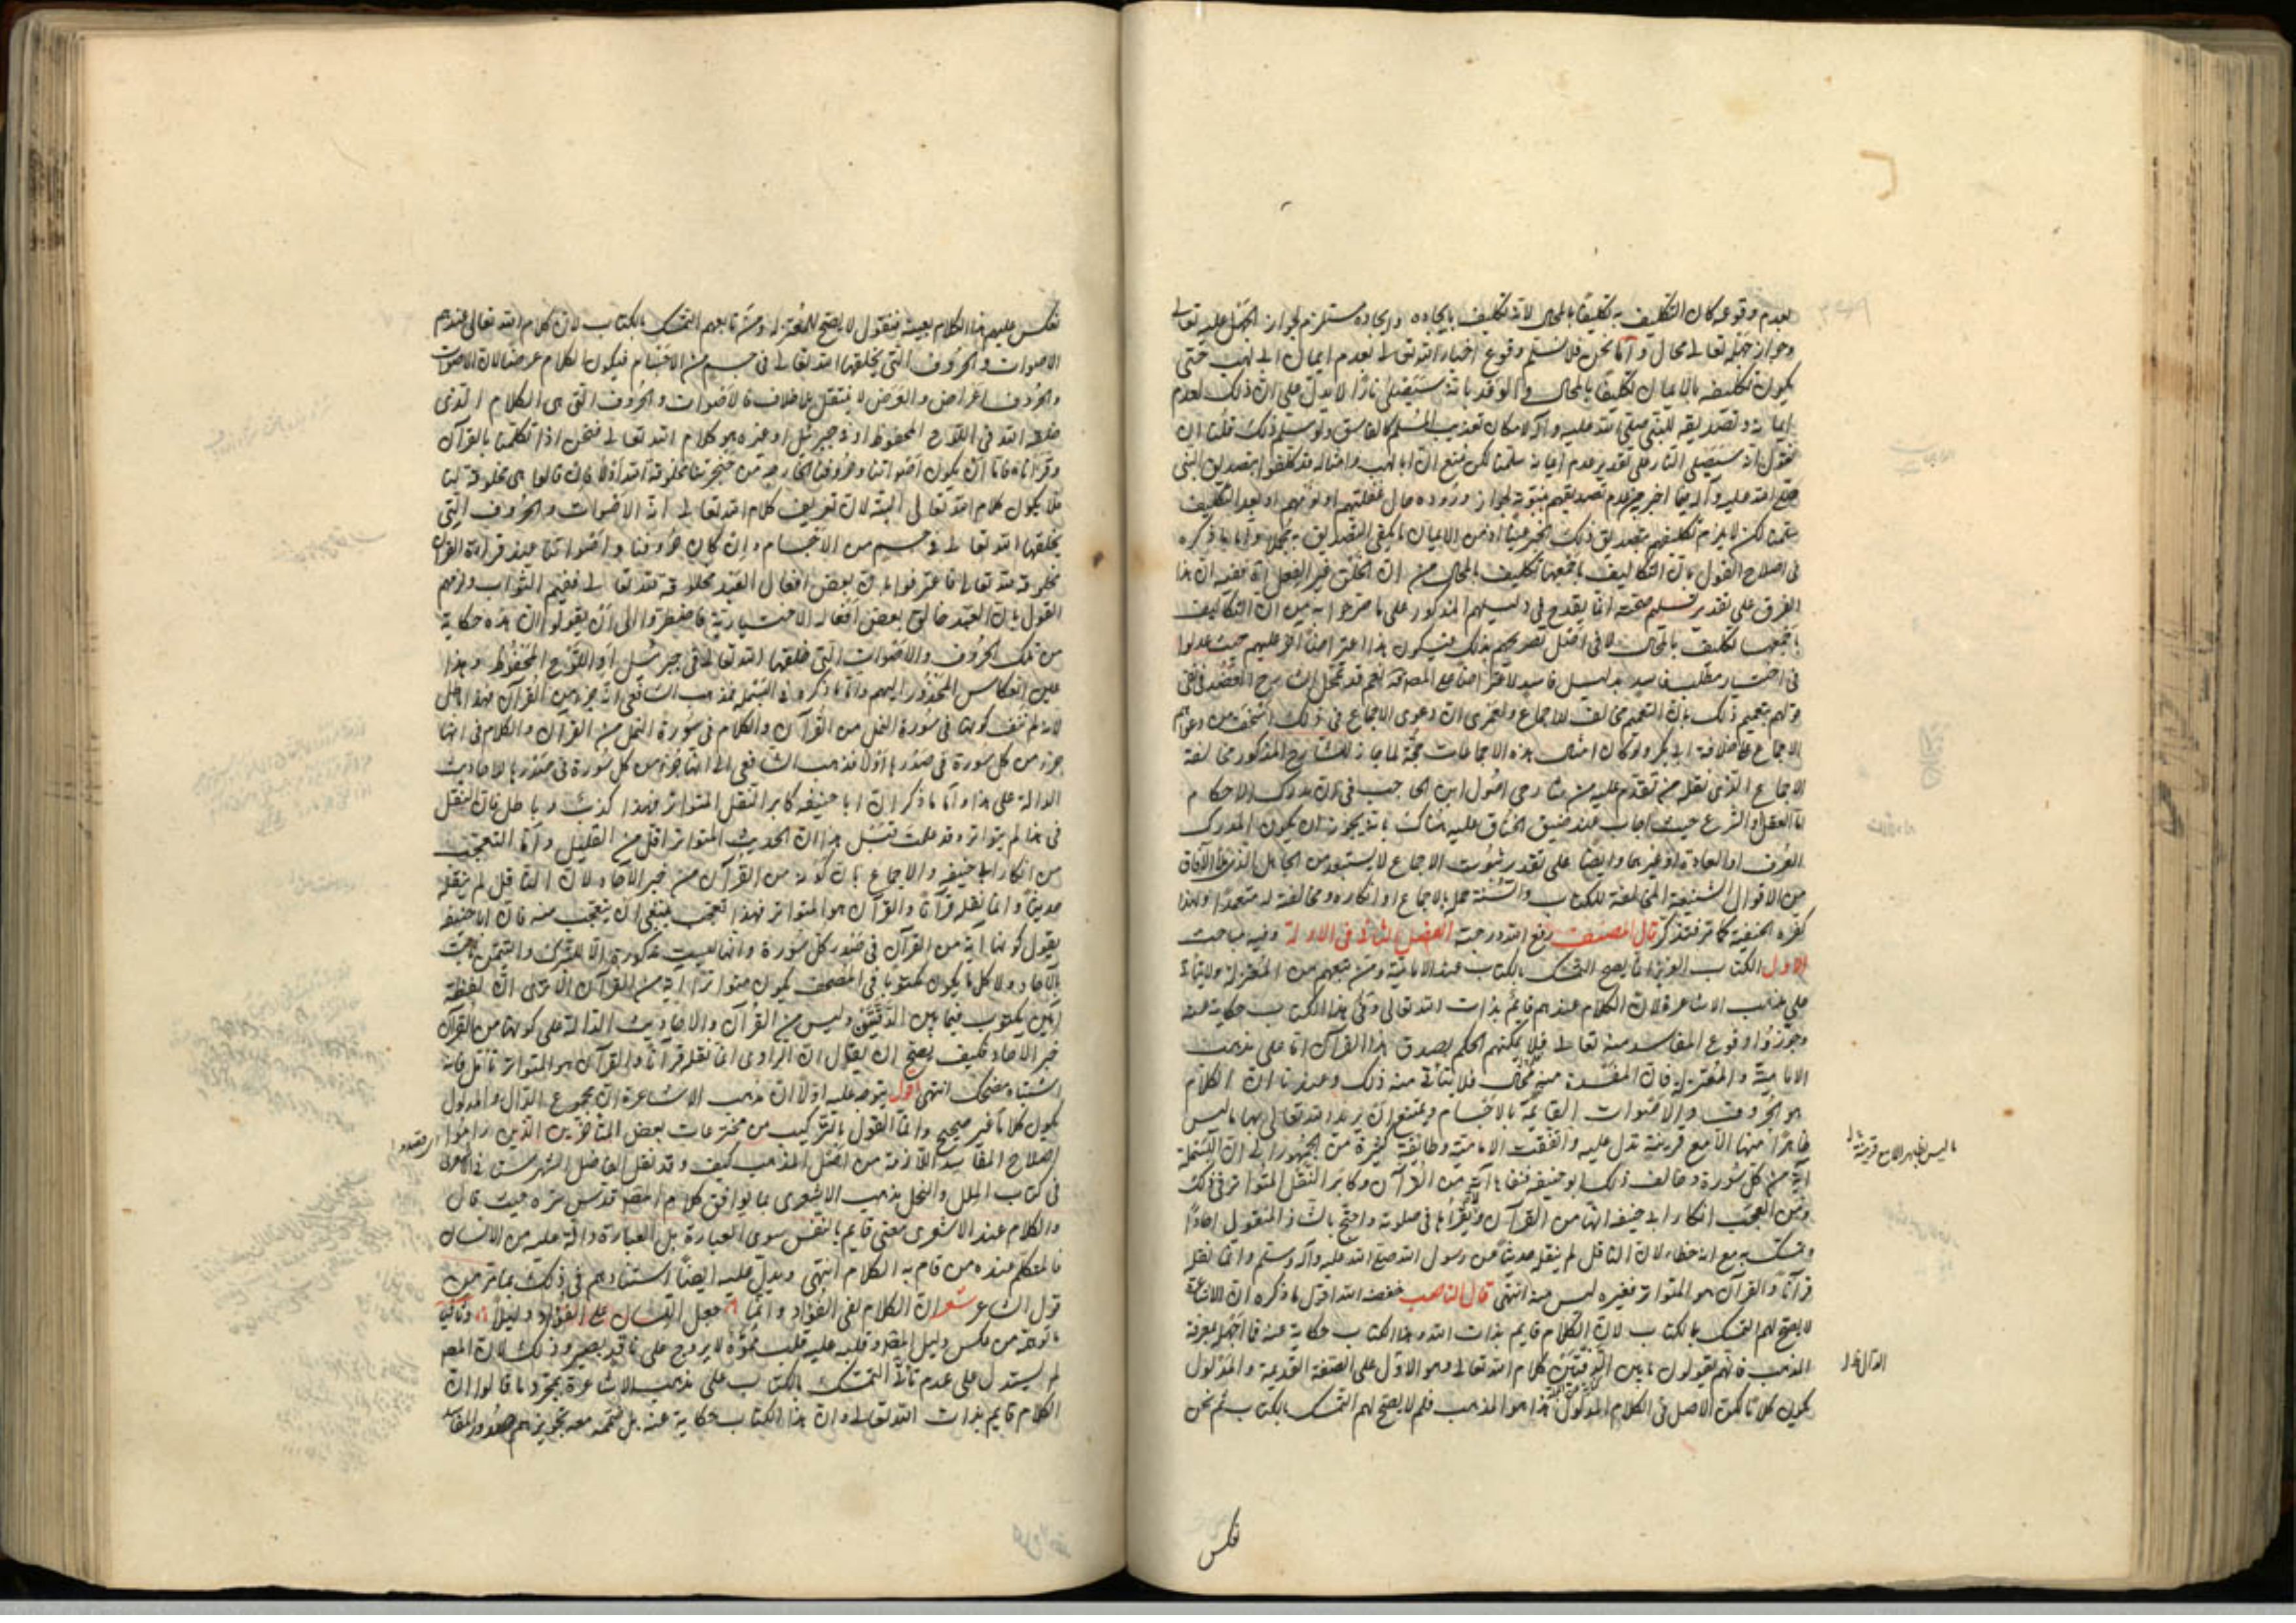 بعدم وقوعه كان التكليف به تكليفا بالمحال لانه تكليف بايجاده وايجاده مستلزم لجواز الجهل عليه تعالى
وجواز جهله تعالى محال واما نحن فلا نسلم وقوع اخبار الله تعالى بعدم ايمان ابي لهب حتى
يكون تكليفه بالايمان تكليفا بالمحال والوعد بانه سيصلى نارا لا يدل على ان ذلك لعدم
ايمانه وتصديقه للنبي صلى الله عليه وآله لامكان تعذيب المسلم كالفاسق ولو سلم ذلك قلنا ان
نقول انه سيصلى النار على تقدير عدم ايمانه سلمنا لكن نمنع ان ابا لهب وامثاله قد كلفوا بتصديق النبي
صلى الله عليه وآله فيما اخبر من عدم تصديقهم بنبوته لجواز وروده حال غفلتهم او نومهم او بعد التكليف
سلمنا لكن لا يلزم تكليفهم بتصديق ذلك الخبر عينا اذ من الايمان ما يكفي التصديق به مجملا واما ما ذكره
في اصلاح القول بان التكاليف باجمعها تكليف بالمحال من ان الخلق غير الفعل ففيه ان هذا
الفرق على تقدير تسليم صحته انما يقدح في دليلهم المذكور على ما صرحوا به من ان التكاليف
باجمعها تكليف بالمحال لا في اصل تصريحهم بذلك فيكون هذا اعتراضا آخر عليهم حيث عدلوا
في اختيار مطلب فاسد بدليل فاسد لا اعتراضا على المصنف نعم قد تمحل الشارح العضد في نفي
قولهم بتعميم ذلك بان التعميم مخالف للاجماع ولعمري ان دعوى الاجماع في ذلك اسخف من دعواهم
الاجماع على خلافة ابي بكر ولو كان امثال هذه الاجماعات حجة لما جاز للشارح المذكور مخالفة
الاجماع الذي نقله من تقدم عليه من شارحي اصول ابن الحاجب في ان مدرك الاحكام
اما العقل او الشرع حيث اجاب عند ضيق الخناق عليه هناك بانه يجوز ان يكون المدرك
العرف او العادة او غيرهما وايضا على تقدير ثبوت الاجماع لا يستبعد من الجاهل
من الاقوال الشنيعة المخالفة للكتاب والسنة جهله بالاجماع او انكاره ومخالفته له متعمدا ولهذا
كفره الحنفية كما مر فتذكر قال المصنف رفع الله درجته الفصل الثاني في الادلة وفيه مباحث
الاول الكتاب العزيز انما يصح التمسك بالكتاب عند الامامية ومن تبعهم من المعتزلة ولا يتأتى
على مذهب الاشاعرة لان الكلام عندهم قايم بذات الله تعالى وفي هذا الكتاب حكاية عنه
وجوزوا وقوع المفاسد منه تعالى فلا يمكنهم الحكم بصدق هذا القرآن اما على مذهب
الامامية والمعتزلة فان المفسدة منه محال فلا يتأتى منه ذلك وعندنا ان الكلام
هو الحروف والاصوات القايمة بالاجسام ويمتنع ان يريد الله تعالى بها ما ليس
ظاهرا منها الا مع قرينة تدل عليه واتفقت الامامية وطائفة كثيرة من الجمهور الى ان البسملة
آية من كل سورة وخالف ذلك ابو حنيفة فنفاها آية من القرآن وكابر النقل المتواتر في ذلك
ومن العجب انكار ابي حنيفة انها من القرآن ولا يقرأها في صلوته واحتج بالشاذ المنقول احادا
وتمسك به مع انه خطاء لان الناقل لم ينقله حديثا عن رسول الله صلى الله عليه وآله وسلم وانما نقله
قرآنا والقرآن هو المتواتر فغيره ليس منه انتهى قال الناصب خفضه الله اقول ما ذكره ان الاشاعرة
لا يصح لهم التمسك بالكتاب لان الكلام قايم بذات الله وهذا الكتاب حكاية عنه فما اجهله بمعرفة
المذهب فانهم يقولون ما بين الدفتين كلام الله تعالى وهو الاول على الصفة القديمة والمدلول
يكون كلاما لكن الاصل في الكلام المدلول هذا هو المذهب فلم لا يصح لهم التمسك بالكتاب ثم نحن
ما ليس بظهر الا مع قرينة
الدال
نعكس
نعكس عليهم هذا الكلام بعينه فنقول لا يصح للمعتزلة ومن تابعهم التمسك بالكتاب لان كلام الله تعالى عندهم
الاصوات والحروف التي يخلقها الله تعالى في جسم من الاجسام فيكون الكلام عرضا لان الاصوات
والحروف اعراض والعرض لا ينتقل بلا خلاف فالاصوات والحروف التي هي الكلام الذي
خلقه الله في اللوح المحفوظ او في جبرئيل او غيره هو كلام الله تعالى فنحن اذا تكلمنا بالقرآن
وقرأناه فاما ان يكون اصواتنا وحروفنا الخارجة من حنجرتنا مخلوقة لله اولا فان قالوا هي مخلوقة لنا
فلا يكون كلام الله تعالى البتة لان تعريف كلام الله تعالى انه الاصوات والحروف التي
يخلقها الله تعالى في جسم من الاجسام وان كان حروفنا واصواتنا عند قراءة القرآن
مخلوقة لله تعالى فاعترفوا بان بعض افعال العبد مخلوقة لله تعالى ففيهم الثواب ولزمهم
القول بان العبد خالق بعض افعاله الاختيارية فاضطروا الى ان يقولوا ان هذه حكاية
من تلك الحروف والاصوات التي خلقها الله تعالى في جبرئيل او اللوح المحفوظ وهذا
عين انعكاس المحذور اليهم واما ما ذكر من ان البسملة فمذهب الشافعي انه جزء من القرآن فهذا باطل
لانه لم ننف كونها في سورة النمل من القرآن والكلام في سورة النمل من القرآن والكلام في انها
جزء من كل سورة في صدرها اولا فذهب الشافعي الى انها جزء من كل سورة في صدرها للاحاديث
الدالة على هذا واما ما ذكر ان ابا حنيفة كابر النقل المتواتر فهذا كذب وباطل فان النقل
في هذا لم يتواتر وقد علمت قبل هذا ان الحديث المتواتر اقل من القليل واما التعجب
من انكار ابي حنيفة والاجماع بان كونه من القرآن من خبر الآحاد لان الناقل لم ينقله
حديثا وانما نقله قرآنا والقرآن هو المتواتر فهذا تعجب ينبغي ان يتعجب منه فان ابا حنيفة
يقول كونها آية من القرآن في صدور كل سورة وانها ليست مذكورة الا للتبرك والتيمن ثابت
بالآحاد ولا كل ما يكون مكتوبا في المصحف يكون متواترا انه من القرآن الا ترى ان لفظة
آمين يكتب فيما بين الدفتين وليس من القرآن والاحاديث الدالة على كونها من القرآن
خبر الآحاد فكيف يصح ان يقال ان الراوي انما نقله قرآنا والقرآن هو المتواتر تأمل فانه
اشتباه مضحك انتهى اقول يتوجه عليه اولا ان مذهب الاشاعرة ان مجموع الدال والمدلول
يكون كلاما غير صحيح وانما القول بالتركيب من مخترعات بعض المتأخرين الذين راموا
اصلاح المفاسد اللازمة من اصل المذهب كيف وقد نقل الفاضل الشهرستاني الاشعري
في كتاب الملل والنحل مذهب الاشعري بما يوافق كلام المصنف قدس سره حيث قال
والكلام عند الاشعري معنى قايم بالنفس سوى العبارة بل العبارة دالة عليه من الانسان
فالمتكلم عنده من قام به الكلام انتهى ويدل عليه ايضا استنادهم في ذلك بما مر من
قول الشاعر شعر ان الكلام لفي الفؤاد وانما جعل اللسان على الفؤاد دليلا وثانيا
ما توهمه من عكس دليل المصنف وقلبه عليه قلب مموه لا يروج على ناقد بصير وذلك لان المصنف
لم يستدل على عدم تأتي التمسك بالكتاب على مذهب الاشاعرة بمجرد ما قالوا ان
الكلام قايم بذات الله تعالى وان هذا الكتاب حكاية عنه بل ضم معه تجويزهم صدور المفاسد